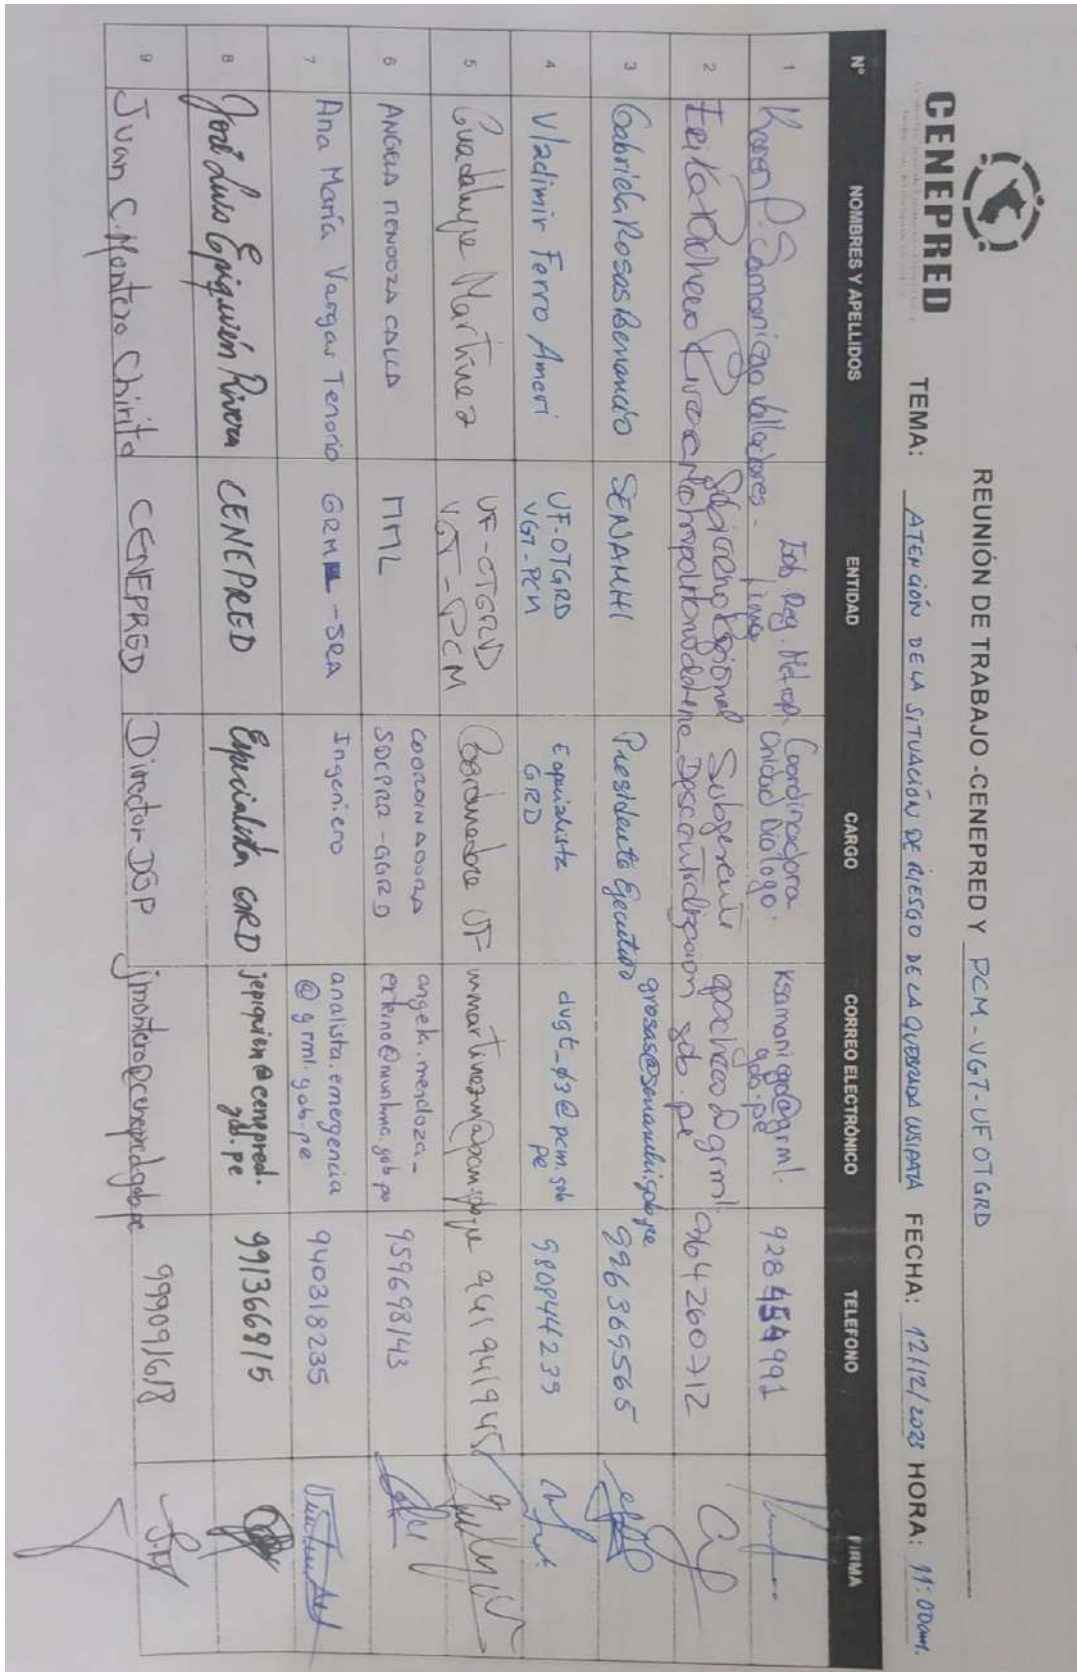 CENEPRED
REUNIÓN DE TRABAJO -CENEPRED Y PCM - VGT - UF OTGRD
TEMA: ATENCIÓN DE LA SITUACIÓN DE RIESGO DE LA QUEBRADA USIPATA FECHA: 12/12/2023 HORA: 11:00am.
N° NOMBRES Y APELLIDOS ENTIDAD CARGO CORREO ELECTRÓNICO TELEFONO FIRMA
1 Karen P. Samaniego Valladares - Gob. Reg. Metrop. Lima Coordinadora Unidad Diálogo. ksamaniego@grml.gob.pe 928454991
2 Erika Pacheco Gobierno Regional Subgerente Descentralización epacheco@grml.gob.pe 964260712
3 Gabriela Rosas Benancio SENAMHI Presidenta Ejecutiva grosas@senamhi.gob.pe 996369565
4 Vladimir Ferro Ameri UF-OTGRD VGT-PCM Especialista GRD dvgt_03@pcm.gob.pe 980844239
5 Guadalupe Martinez UF-OTGRD VGT-PCM Coordinadora UF mmartinezm@pcm.gob.pe 941941945
6 ANGELA MENDOZA CALLA MML COORDINADORA SDCPRR-GGRD angela.mendoza_externo@munlima.gob.pe 959698143
7 Ana María Vargas Tenorio GRML-SRA Ingeniero analista.emergencia@grml.gob.pe 940318235
8 José Luis Epiquién Rivera CENEPRED Especialista GRD jepiquien@cenepred.gob.pe 991366915
9 Juan C. Montero Chirito CENEPRED Director DGP jmontero@cenepred.gob.pe 999091618